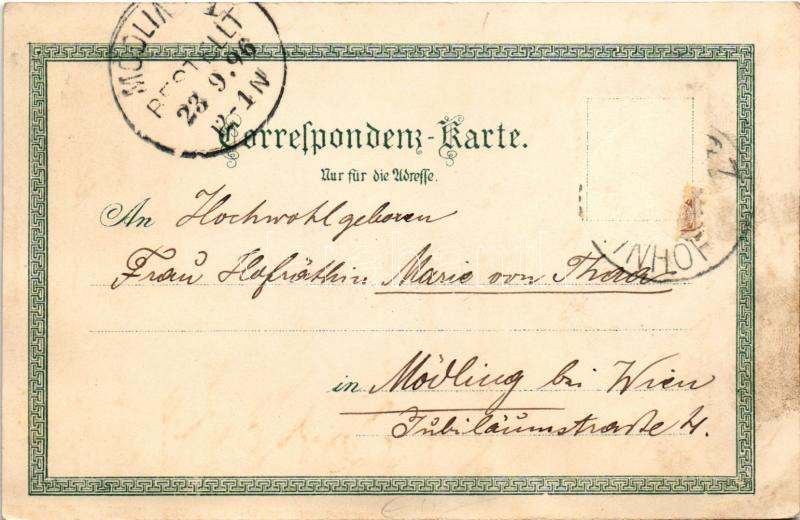 MÖDLING
BESTELLT
23 9.96
8-1N
Correspondenz-Karte.
Nur für die Adresse.
An Hochwohlgeboren
Frau Hofräthin Marie von Thaa
in Mödling bei Wien
Jubiläumstraße 4.
darabanth